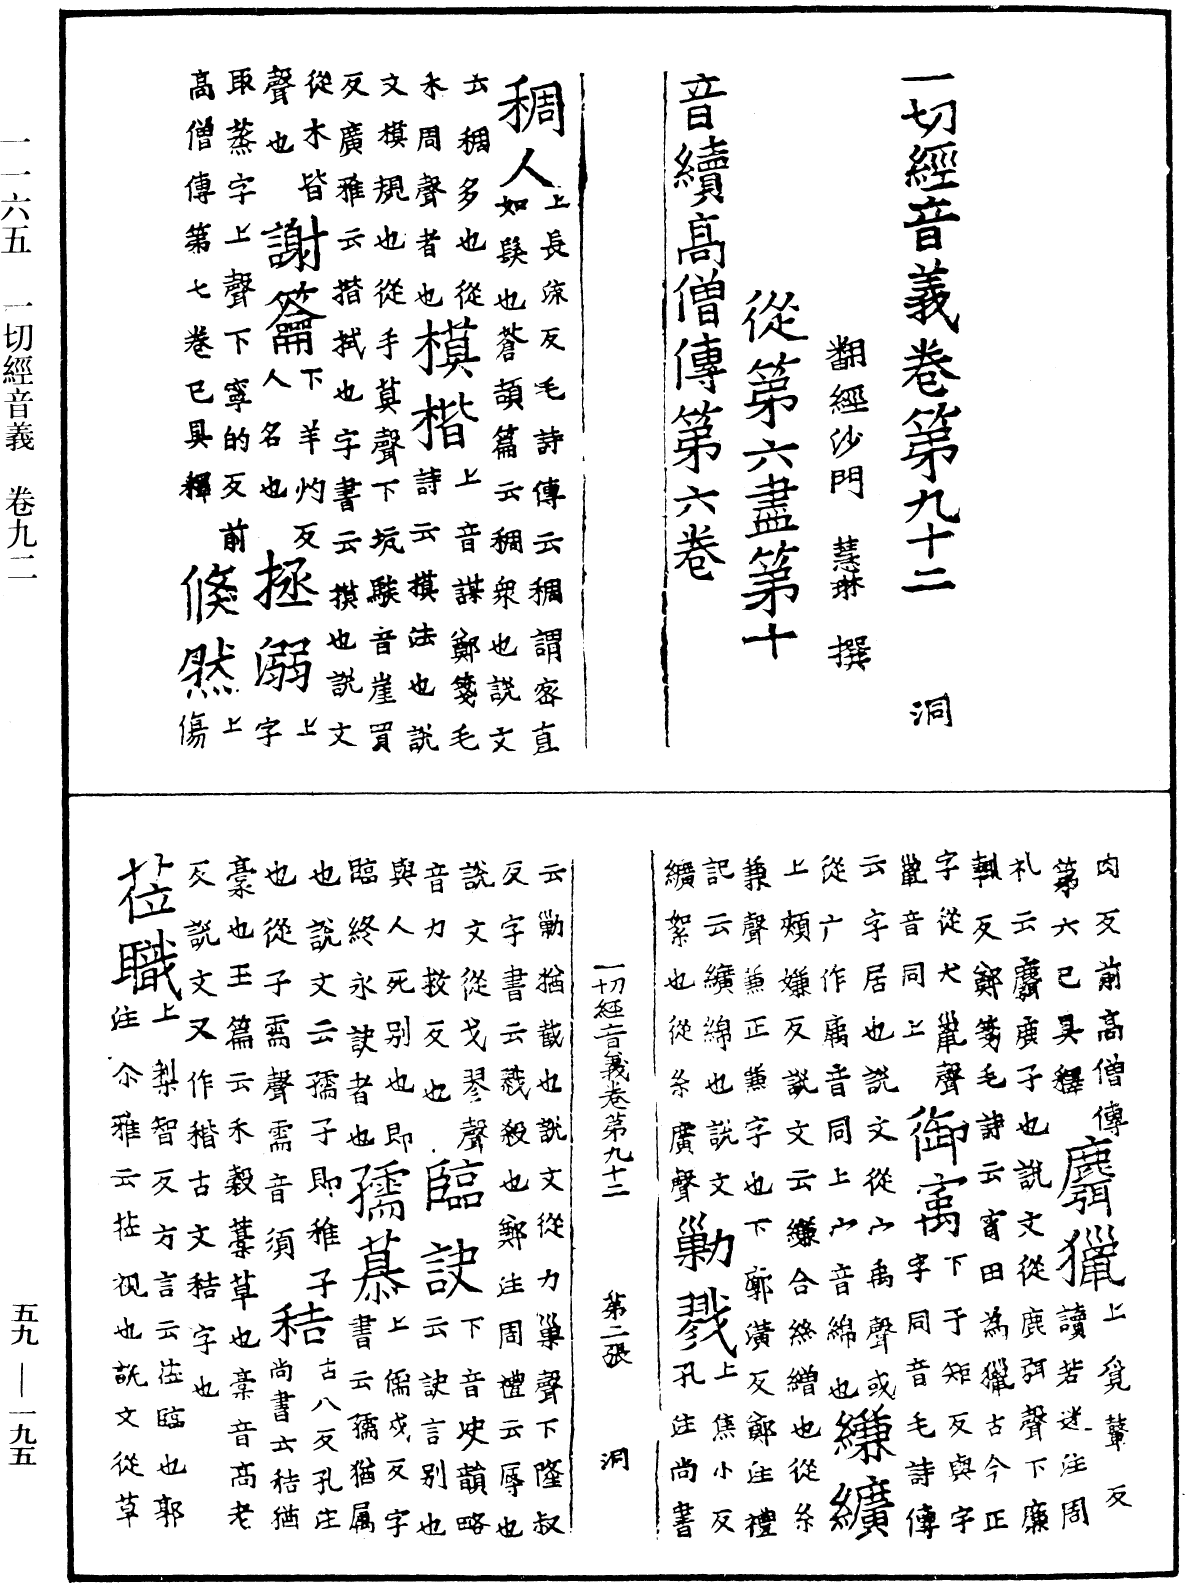 一切經音義卷第九十二　洞
翻經沙門　慧琳　撰
從第六盡第十
音續高僧傳第六卷
稠人上長流反毛詩傳云稠謂密直
如髮也蒼頡篇云稠衆也說文
云稠多也從
禾周聲者也
模楷上音謀鄭箋毛
詩云模法也說
文模規也從手莫聲下坑駭音崖買
反廣雅云揩拭也字書云摸也說文
從木皆
聲也
謝籥下羊灼反
人名也
拯溺上
字
取蒸字上聲下寧的反前
高僧傳第七卷已具釋
倏然上
傷
肉反前高僧傳
第六已具釋
麛獵上覓蹩反
讀若迷注周
礼云麛鹿子也說文從鹿弭聲下廉
輒反鄭箋毛詩云宵田為獵古今正
字從犬巤聲
巤音同上
御㝢下于矩反與字
字同音毛詩傳
云字居也說文從宀禹聲或
從广作㢏音同上宀音綿也
縑纊
上頰嫌反說文云縑合絲繒也從糸
兼聲蒹正蒹字也下廓潢反鄭注禮
記云纊綿也說文
纊絮也從糸廣聲
勦戮上焦小反
孔注尚書
一切經音義卷第九十二　第二張　洞
云勦猶截也說文從力巢聲下隆叔
反字書云戮殺也鄭注周禮云辱也
說文從戈翏聲
音力救反也
臨訣下音史韻略
云訣言別也
與人死別也即
臨終永訣者也
孺慕上儒戍反字
書云孺猶属
也說文云孺子即稚子
也從子需聲需音須
秸古八反孔注
尚書云秸猶
稾也玉篇云禾穀藁草也稾音高老
反說文又作稭古文秸字也
莅職上梨智反方言云莅臨也郭
注尒雅云莅視也說文從草
一一六五　一切經音義　卷九二
五九—一九五